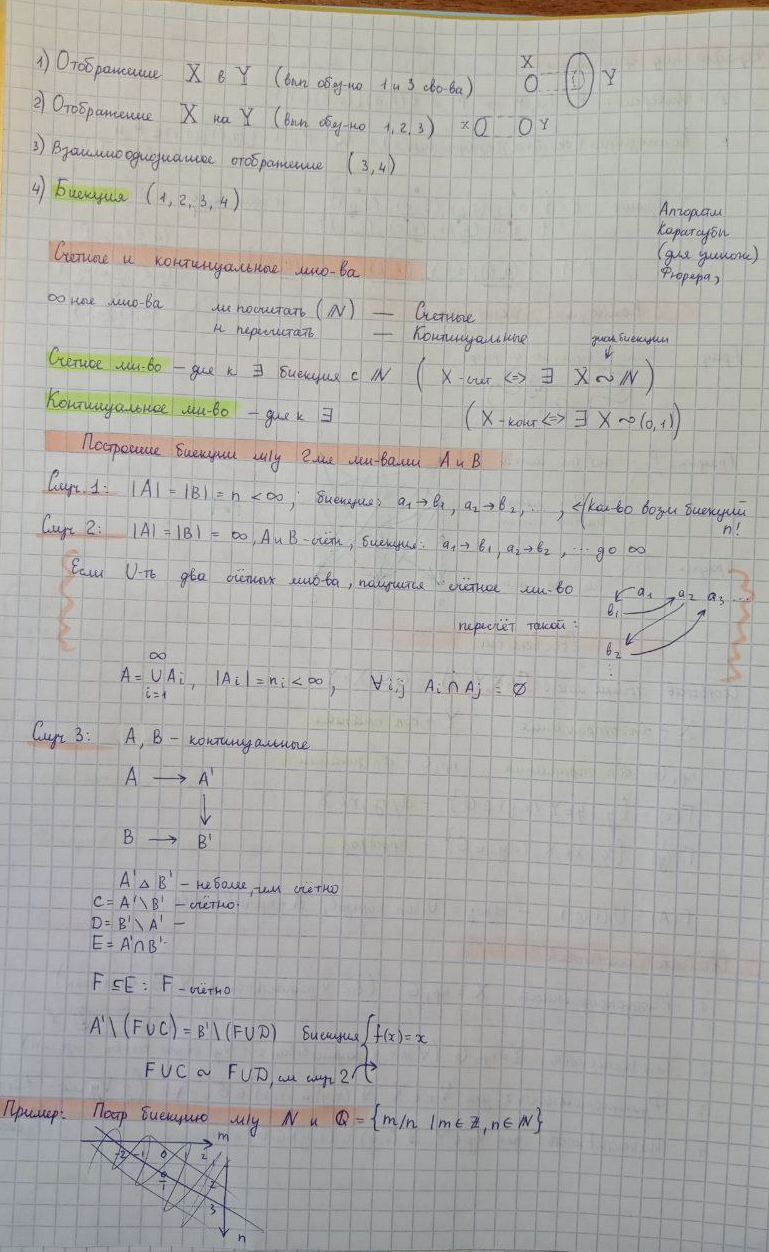 1) Отображение X в Y (вып обуз-но 1 и 3 сво-ва) X Y
2) Отображение X на Y (вып обуз-но 1, 2, 3) X Y
3) Взаимнооднозначное отображение (3, 4)
4) Биекция (1, 2, 3, 4)
Алгоритм
Карацубы
(для умнож)
Фюрера,
Счетные и континуальные мно-ва
∞ные мно-ва ли посчитать (ℕ) — Счетные
н пересчитать — Континуальные
знак биекции
Счётное мн-во – для к ∃ биекция с ℕ ( X-счёт <=> ∃ X ~ ℕ )
Континуальное мн-во – для к ∃ ( X-конт <=> ∃ X ~ (0,1) )
Построение биекции м/у 2мя мн-вами A и B
Случ. 1: |A| = |B| = n < ∞, биекция: a₁→b₁, a₂→b₂, ..., кол-во возм биекций
n!
Случ 2: |A| = |B| = ∞, A и B-счётн, биекция: a₁→b₁, a₂→b₂, ... до ∞
Если U-ть два счётных мно-ва, получится счётное мн-во a₁ a₂ a₃ ...
b₁
пересчёт такой:
b₂
⋮
A = ∪ Aᵢ, |Aᵢ| = nᵢ < ∞, ∀i,j Aᵢ ∩ Aⱼ = ∅
∞
i=1
Случ 3: A, B – континуальные
A → A'
↓
B → B'
A' △ B' – не более, чем счётно
C = A' \ B' – счётно
D = B' \ A' –
E = A' ∩ B'
F ⊆ E : F – счётно
A' \ (F ∪ C) = B' \ (F ∪ D) биекция { f(x) = x
F ∪ C ~ F ∪ D, см случ 2
Пример: Постр биекцию м/у ℕ и ℚ = {m/n | m ∈ ℤ, n ∈ ℕ}
m
-2 -1 0 1 2
0/1
1
2
3
n